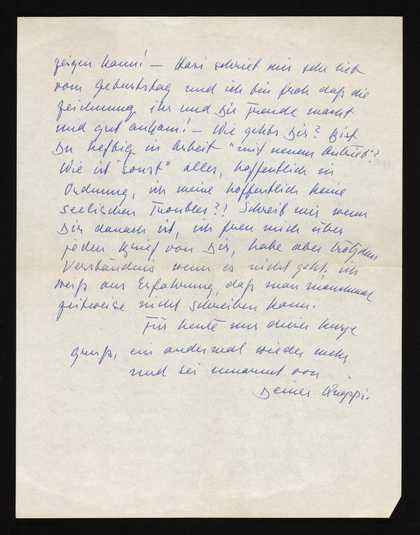 zeigen kann! – Hasi schrieb mir sehr lieb
vom Geburtstag und ich bin froh daß die
Zeichnung ihr und Dir Freude macht
und gut ankam! – Wie gehts Dir? Bist
Du heftig in Arbeit "mit neuem Antrieb"?
Wie ist "sonst" alles, hoffentlich in
Ordnung, ich meine hoffentlich keine
seelischen Troubles?! Schreib mir wenn
Dir danach ist, ich freu mich über
jeden Brief von Dir, habe aber trotzdem
Verständnis wenn es nicht geht, ich
weiß aus Erfahrung, daß man manchmal
zeitweise nicht schreiben kann.
Für heute nur dieser kurze
Gruß, ein andermal wieder mehr
und sei umarmt von
Deiner